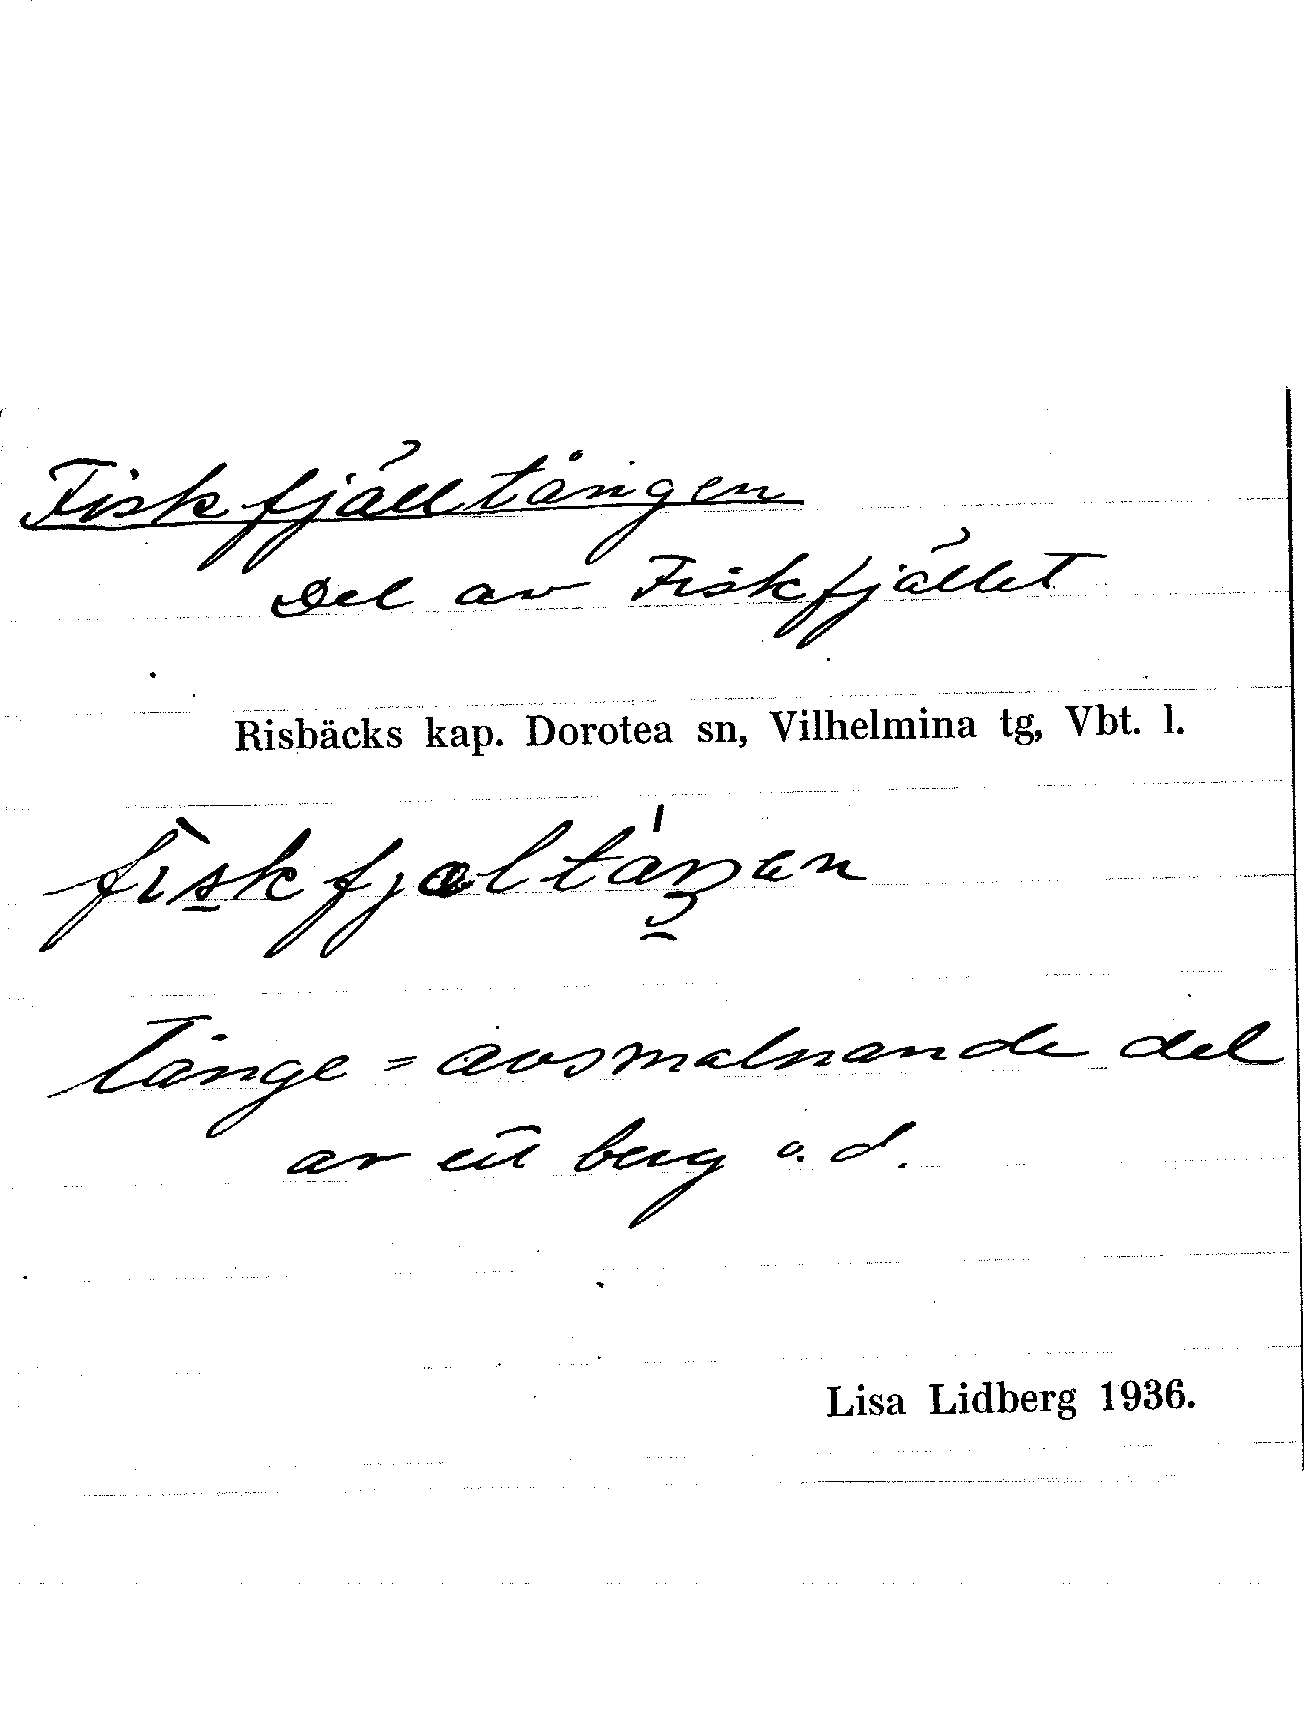 Fiskfjälltången
Del av Fiskfjället
Risbäcks kap. Dorotea sn, Vilhelmina tg, Vbt. l.
Tånge = avsmalnande del
av ett berg o. d.
Lisa Lidberg 1936.